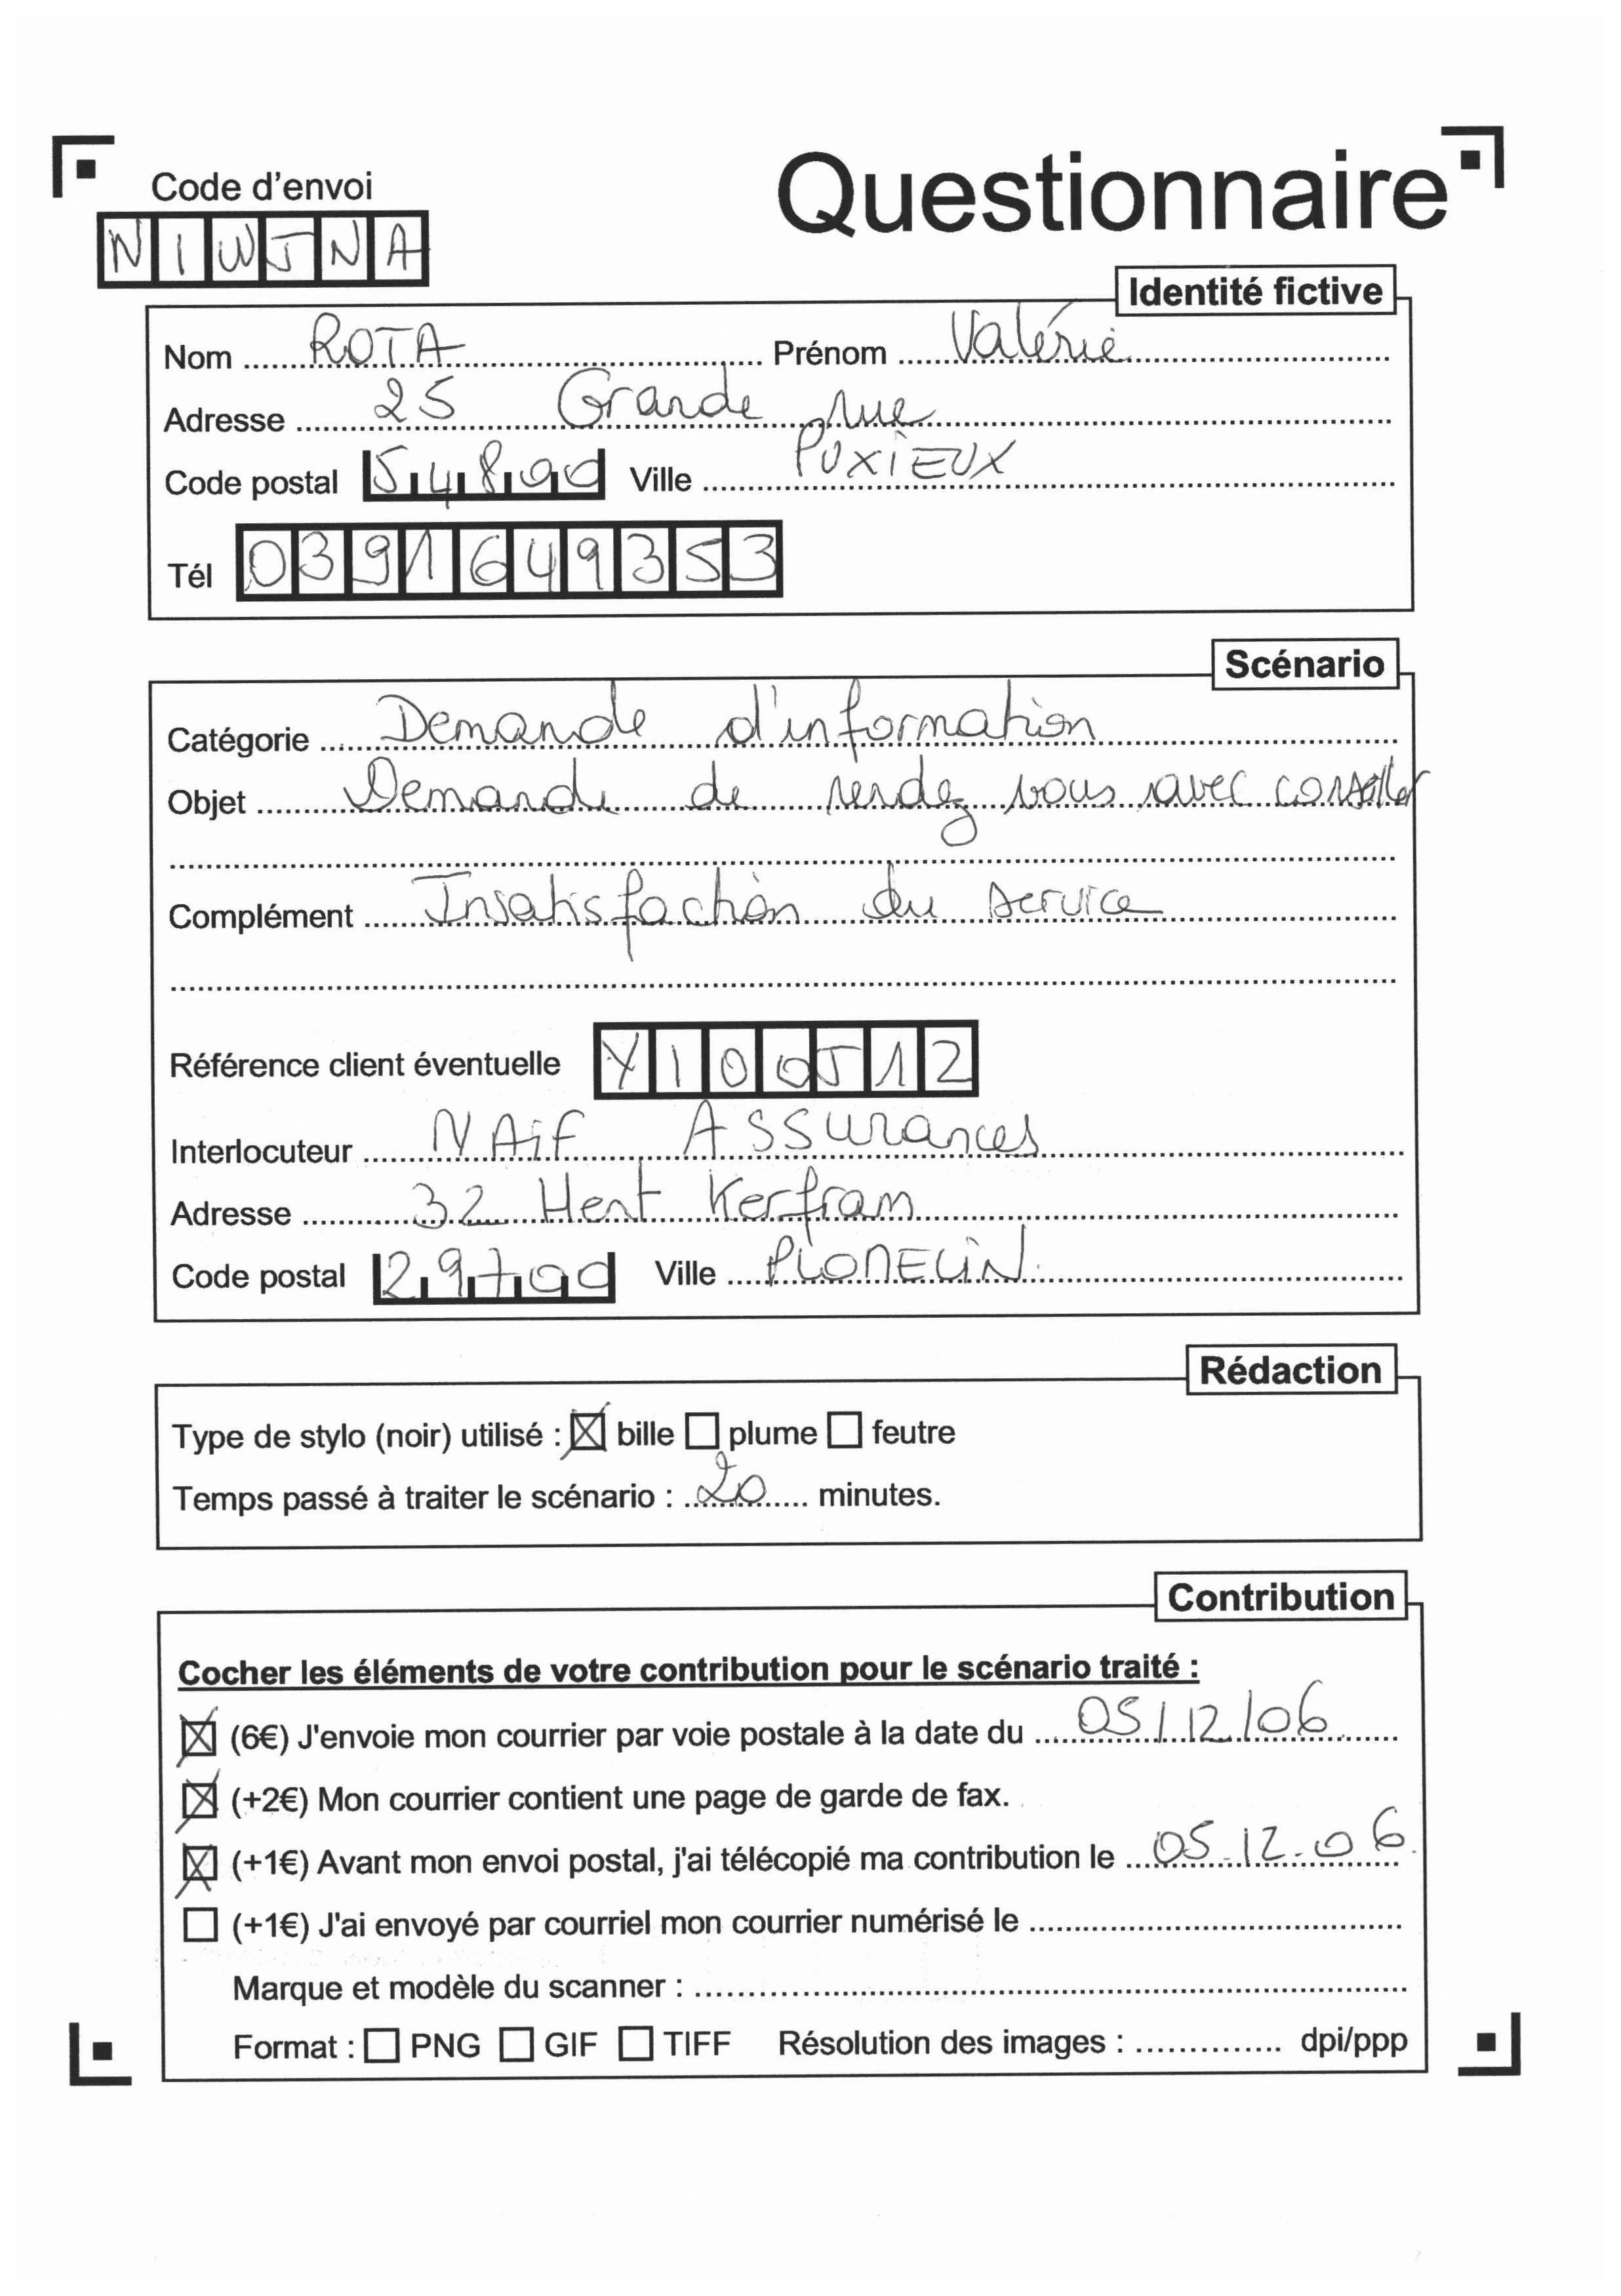 Code d'envoi
Questionnaire
NIWJNA
Identité fictive
Nom ROTA Prénom Valérie
Adresse 25 Grande rue
Code postal 54890 Ville PUXIEUX
Tél 0391649353
Scénario
Catégorie Demande d'information
Objet Demande de rendez vous avec conseiller
Complément Insatisfaction du service
Référence client éventuelle YI00J12
Interlocuteur NAif Assurances
Adresse 32 Hent Kerfram
Code postal 29700 Ville PLOMELIN
Rédaction
Type de stylo (noir) utilisé : ☒ bille ☐ plume ☐ feutre
Temps passé à traiter le scénario : 20 minutes.
Contribution
Cocher les éléments de votre contribution pour le scénario traité :
☒ (6€) J'envoie mon courrier par voie postale à la date du 05/12/06
☒ (+2€) Mon courrier contient une page de garde de fax.
☒ (+1€) Avant mon envoi postal, j'ai télécopié ma contribution le 05.12.06.
☐ (+1€) J'ai envoyé par courriel mon courrier numérisé le
Marque et modèle du scanner :
Format : ☐ PNG ☐ GIF ☐ TIFF Résolution des images : dpi/ppp